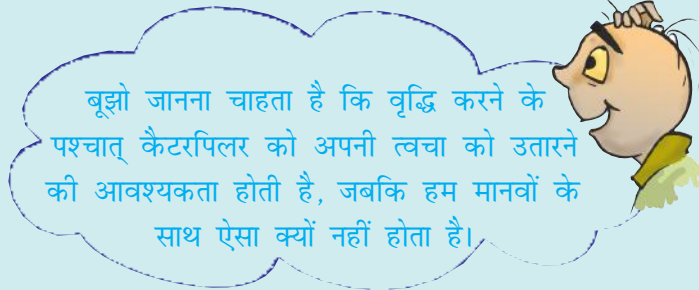 बूझो जानना चाहता है कि वृद्धि करने के
पश्चात् कैटरपिलर को अपनी त्वचा को उतारने
की आवश्यकता होती है, जबकि हम मानवों के
साथ ऐसा क्यों नहीं होता है।